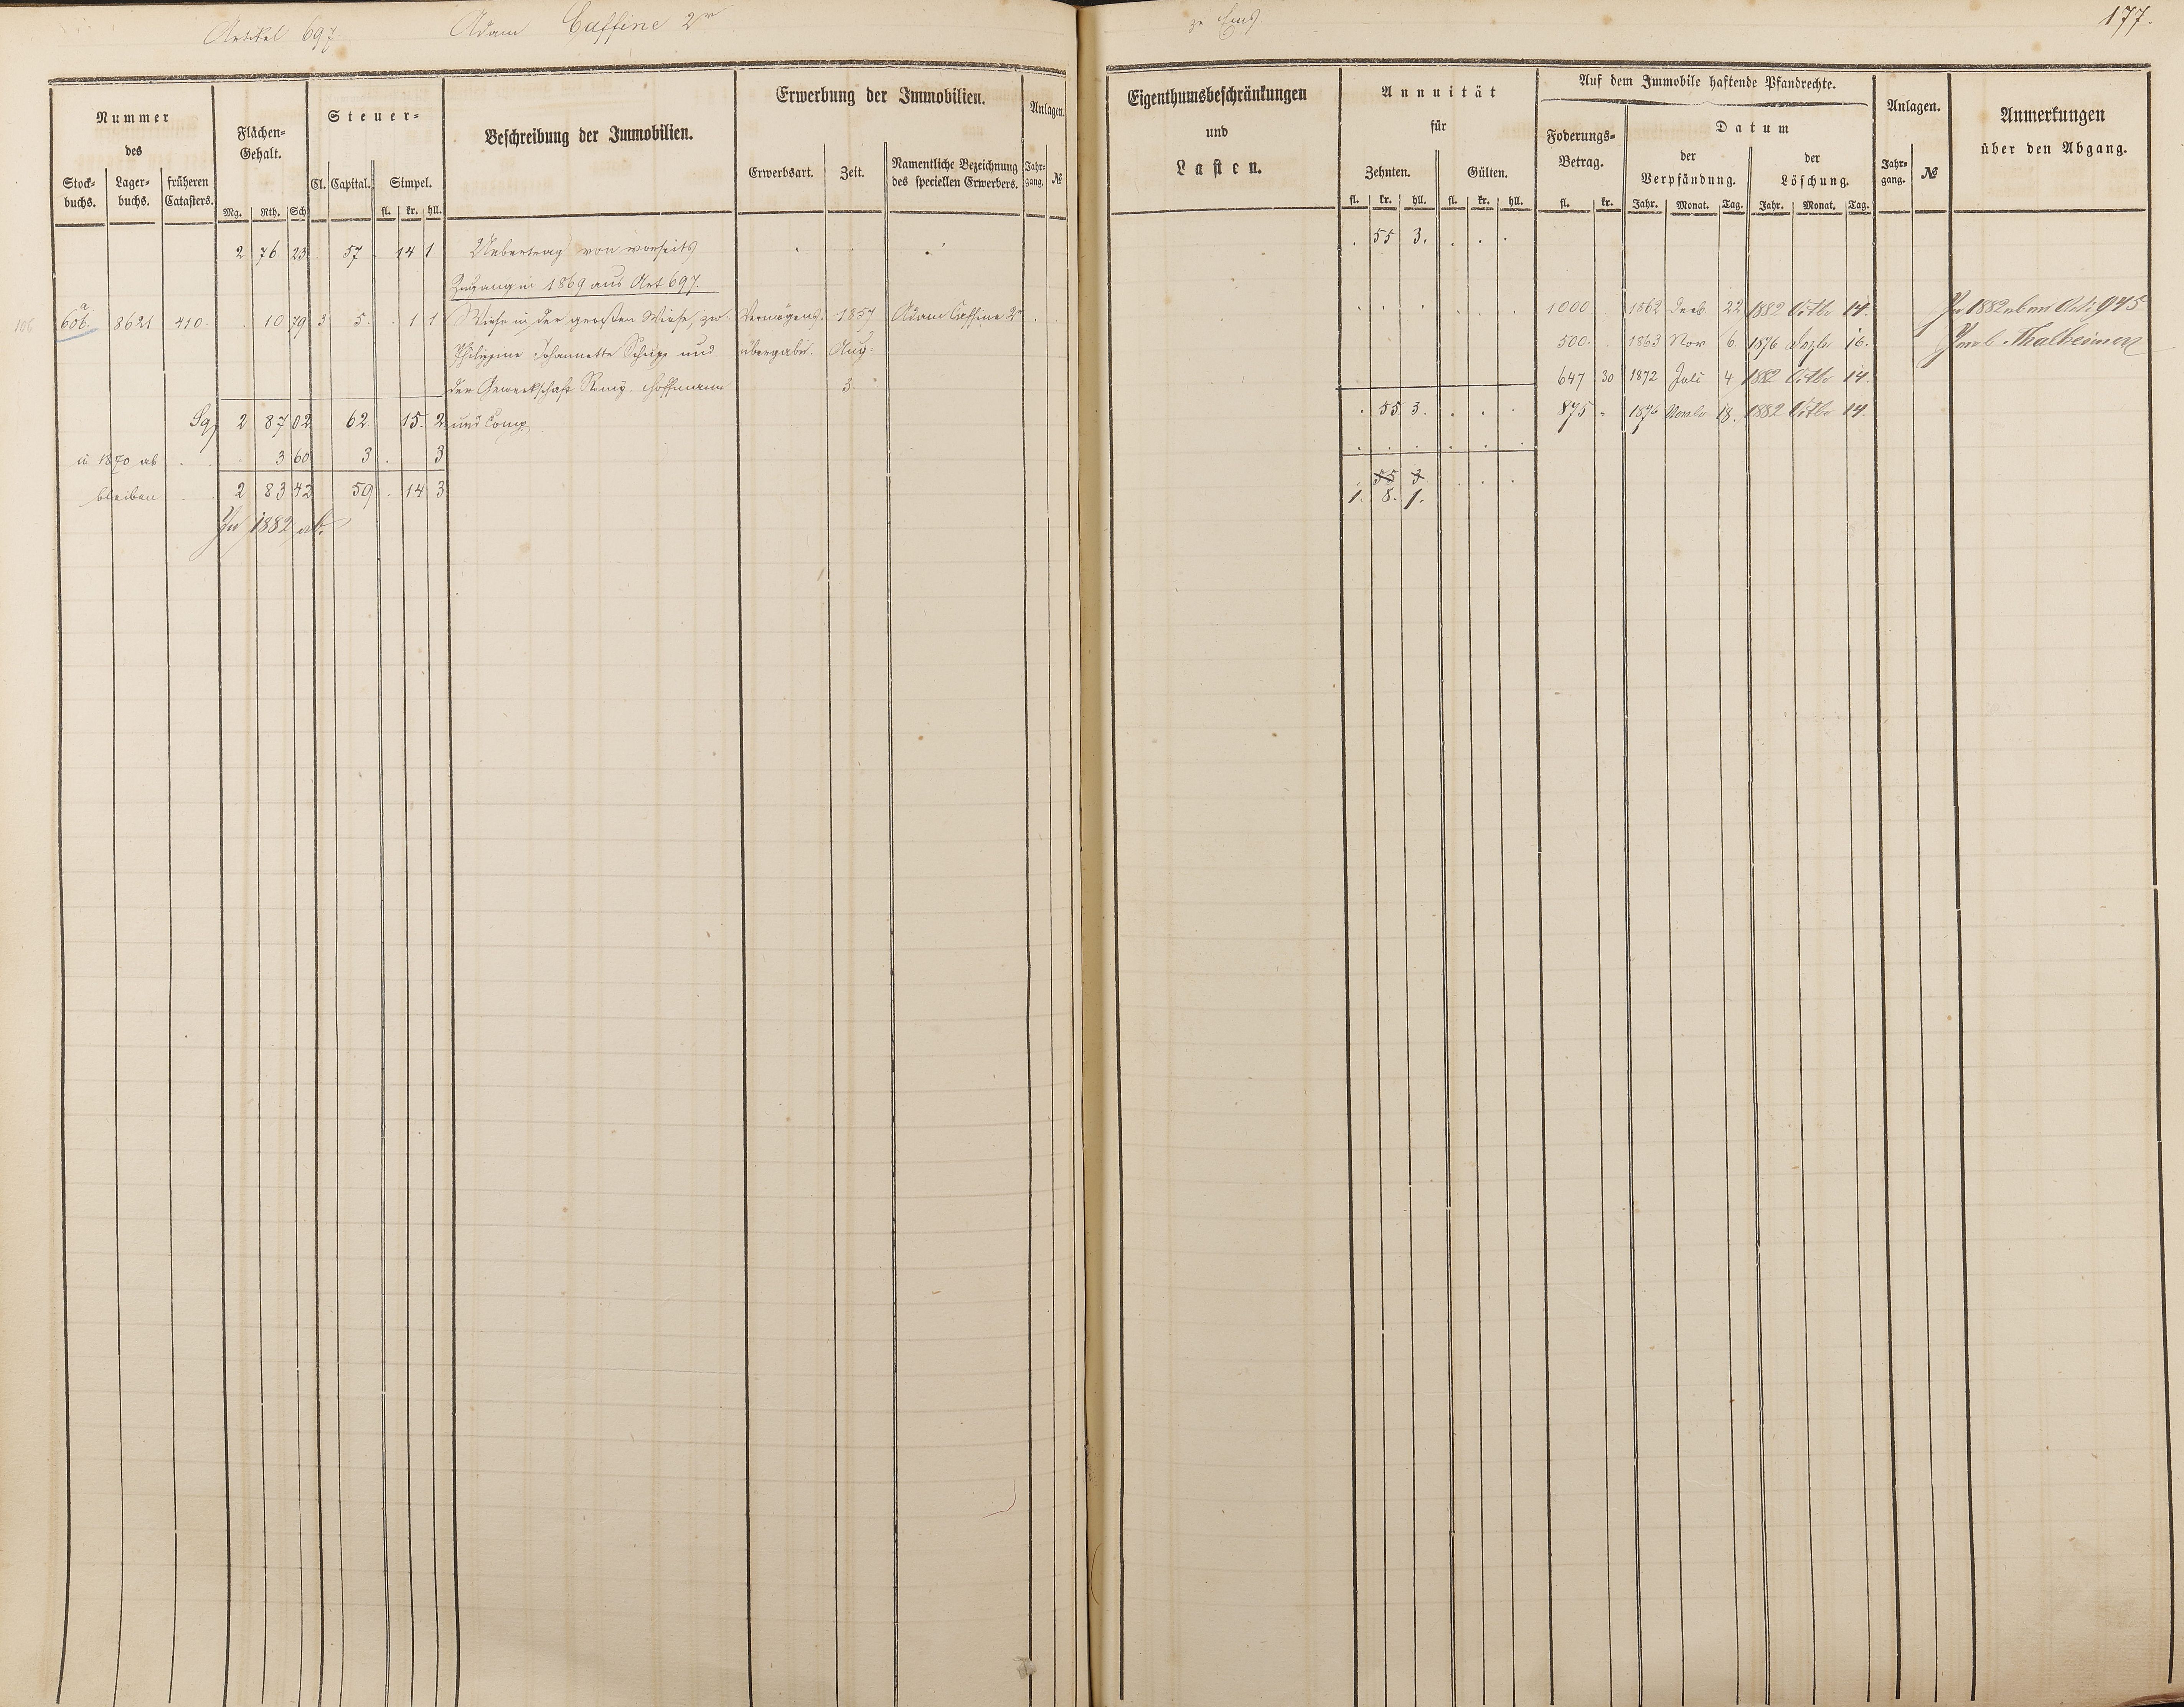 Artikel 697 Adam Caffine 2r zu Ems 177.
Nummer
des
Stock-
buchs.
Lager-
buchs.
früheren
Catasters.
Flächen-
Gehalt.
Mg. Rth. Sch
Steuer-
Cl. Capital. Simpel.
fl. kr. hll.
Beschreibung der Immobilien.
Erwerbung der Immobilien.
Erwerbsart. Zeit. Namentliche Bezeichnung
des speciellen Erwerbers.
Anlagen.
Jahr-
gang. №
Eigenthumsbeschränkungen
und
Lasten.
Annuität
für
Zehnten. Gülten.
fl. kr. hll. fl. kr. hll.
Auf dem Immobile haftende Pfandrechte.
Foderungs-
Betrag.
fl. kr.
Datum
der
Verpfändung.
Jahr. Monat. Tag.
der
Löschung.
Jahr. Monat. Tag.
Anlagen.
Jahr-
gang. №
Anmerkungen
über den Abgang.
2 76 23 57 14 1 Uebertrag von vorseits . 55 3. . . .
Zugang in 1869 aus Art 697.
106 60b a 8621 410. . 10 79 3 5. . 1 1 Wiese in der großen Wiese, zw Vermögens- 1857 Adam Caffine 2r 1000 1862 Decb 22 1882 Octbr 14. In 1882 ab nm Art: 945
Philippine Johannette Schupp und übergabe. Aug. 500. 1863 Nov 6. 1876 Dezbr 16. Jmb. Thalheimer
der Gewerkschaft Remy, Hoffmann 3. 647 30 1872 Juli 4 1882 Octbr 14.
Sa 2 87 02 62. 15. 2 und Comp. . 55 3. . . . 875 - 1876 Novbr 18. 1882 Octbr 14.
in 1870 ab . . . 3 60 3 . 3
bleiben . . 2 83 42 59 . 14 3 . 55 3. . . .
1. 8. 1.
In 1882 ab.